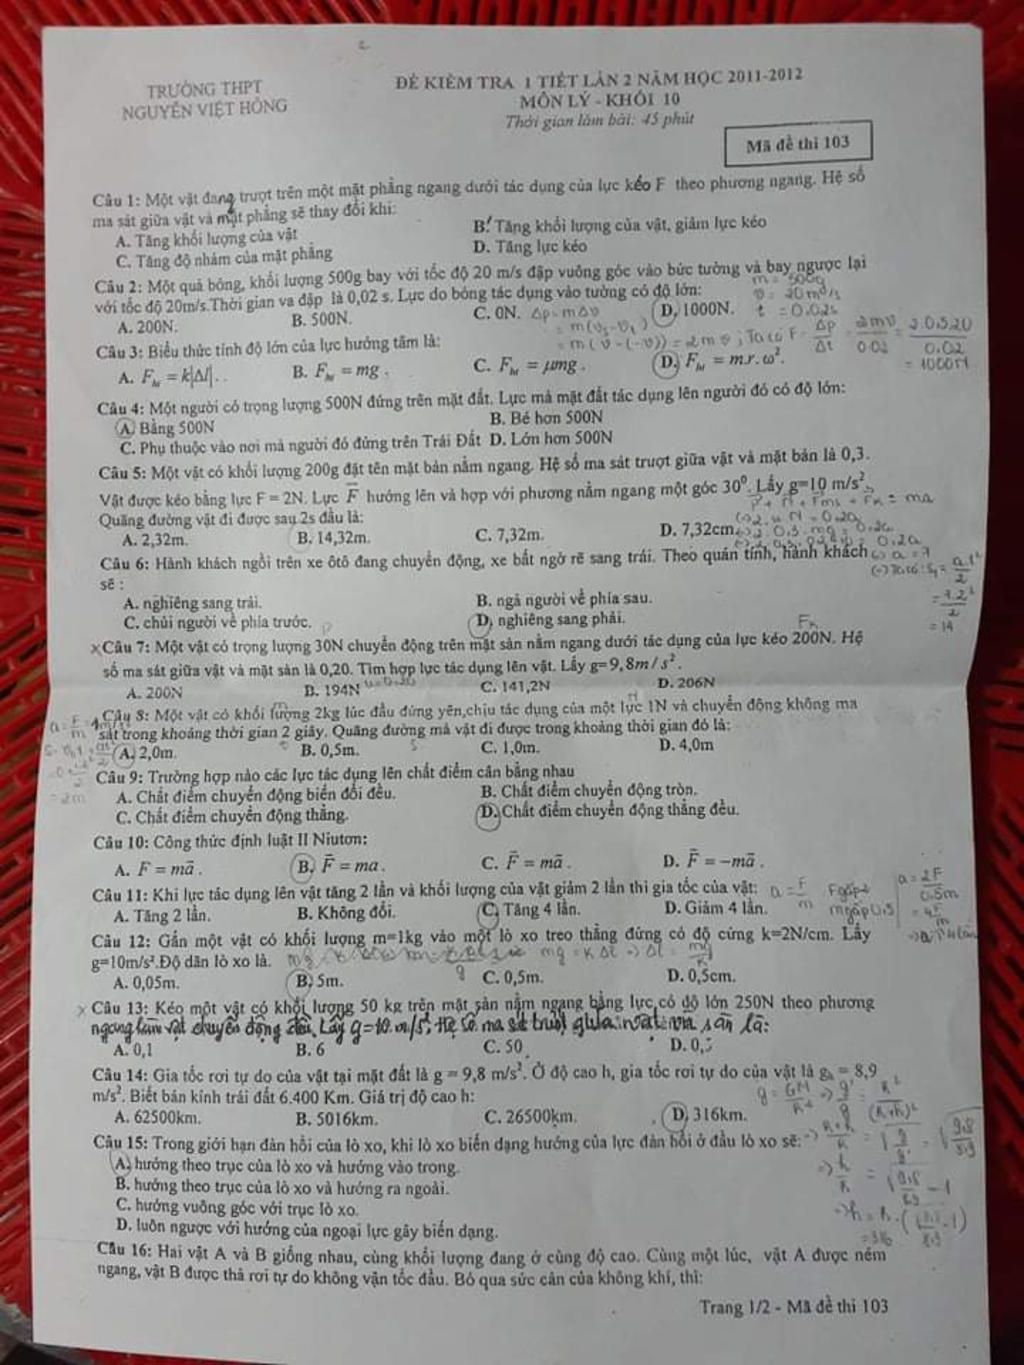 TRƯỜNG THPT
NGUYỄN VIỆT HỒNG
ĐỀ KIỂM TRA 1 TIẾT LẦN 2 NĂM HỌC 2011-2012
MÔN LÝ - KHỐI 10
Thời gian làm bài: 45 phút
Mã đề thi 103
Câu 1: Một vật đang trượt trên một mặt phẳng ngang dưới tác dụng của lực kéo F theo phương ngang. Hệ số
ma sát giữa vật và mặt phẳng sẽ thay đổi khi:
A. Tăng khối lượng của vật B. Tăng khối lượng của vật, giảm lực kéo
C. Tăng độ nhám của mặt phẳng D. Tăng lực kéo
Câu 2: Một quả bóng, khối lượng 500g bay với tốc độ 20 m/s đập vuông góc vào bức tường và bay ngược lại
m = 500g
với tốc độ 20m/s.Thời gian va đập là 0,02 s. Lực do bóng tác dụng vào tường có độ lớn:
v = 20m/s
A. 200N. B. 500N. C. 0N. D. 1000N.
Δp = mΔv
t = 0.02s
= m(v₂-v₁)
= m(v-(-v)) = 2mv; Ta có F = Δp/Δt = 2mv/0.02 = 2.0,5.20/0.02
= 1000N
Câu 3: Biểu thức tính độ lớn của lực hướng tâm là:
A. F_ht = k|Δl|. B. F_ht = mg. C. F_ht = μmg. D. F_ht = m.r.ω².
Câu 4: Một người có trọng lượng 500N đứng trên mặt đất. Lực mà mặt đất tác dụng lên người đó có độ lớn:
A. Bằng 500N B. Bé hơn 500N
C. Phụ thuộc vào nơi mà người đó đứng trên Trái Đất D. Lớn hơn 500N
Câu 5: Một vật có khối lượng 200g đặt tên mặt bàn nằm ngang. Hệ số ma sát trượt giữa vật và mặt bàn là 0,3.
Vật được kéo bằng lực F = 2N. Lực F⃗ hướng lên và hợp với phương nằm ngang một góc 30⁰. Lấy g=10 m/s².
P + N + Fms + Fk = ma
Quãng đường vật đi được sau 2s đầu là:
A. 2,32m. B. 14,32m. C. 7,32m. D. 7,32cm
Câu 6: Hành khách ngồi trên xe ôtô đang chuyển động, xe bất ngờ rẽ sang trái. Theo quán tính, hành khách
sẽ :
A. nghiêng sang trái. B. ngả người về phía sau.
C. chúi người về phía trước. D. nghiêng sang phải.
Câu 7: Một vật có trọng lượng 30N chuyển động trên mặt sàn nằm ngang dưới tác dụng của lực kéo 200N. Hệ
số ma sát giữa vật và mặt sàn là 0,20. Tìm hợp lực tác dụng lên vật. Lấy g=9,8m/s².
A. 200N B. 194N C. 141,2N D. 206N
Câu 8: Một vật có khối lượng 2kg lúc đầu đứng yên,chịu tác dụng của một lực 1N và chuyển động không ma
sát trong khoảng thời gian 2 giây. Quãng đường mà vật đi được trong khoảng thời gian đó là:
A. 2,0m. B. 0,5m. C. 1,0m. D. 4,0m
Câu 9: Trường hợp nào các lực tác dụng lên chất điểm cân bằng nhau
= 2m
A. Chất điểm chuyển động biến đổi đều. B. Chất điểm chuyển động tròn.
C. Chất điểm chuyển động thẳng. D. Chất điểm chuyển động thẳng đều.
Câu 10: Công thức định luật II Niutơn:
A. F = ma⃗. B. F⃗ = ma. C. F⃗ = ma⃗. D. F⃗ = −ma⃗.
Câu 11: Khi lực tác dụng lên vật tăng 2 lần và khối lượng của vật giảm 2 lần thì gia tốc của vật:
a = F/m F gấp 2
m gấp 0,5
a = 2F/0.5m
= 4F/m
A. Tăng 2 lần. B. Không đổi. C. Tăng 4 lần. D. Giảm 4 lần.
Câu 12: Gắn một vật có khối lượng m=1kg vào một lò xo treo thẳng đứng có độ cứng k=2N/cm. Lấy
g=10m/s².Độ dãn lò xo là.
mg = kΔl → Δl = mg/k
A. 0,05m. B. 5m. C. 0,5m. D. 0,5cm.
Câu 13: Kéo một vật có khối lượng 50 kg trên mặt sàn nằm ngang bằng lực có độ lớn 250N theo phương
ngang làm vật chuyển động đều. Lấy g=10 m/s². Hệ số ma sát trượt giữa vật và sàn là:
A. 0,1 B. 6 C. 50 D. 0,
Câu 14: Gia tốc rơi tự do của vật tại mặt đất là g = 9,8 m/s². Ở độ cao h, gia tốc rơi tự do của vật là gₕ = 8,9
m/s². Biết bán kính trái đất 6.400 Km. Giá trị độ cao h:
g = GM/R² → g'/g = R²/(R+h)²
A. 62500km. B. 5016km. C. 26500km. D. 316km.
Câu 15: Trong giới hạn đàn hồi của lò xo, khi lò xo biến dạng hướng của lực đàn hồi ở đầu lò xo sẽ:
A. hướng theo trục của lò xo và hướng vào trong.
B. hướng theo trục của lò xo và hướng ra ngoài.
C. hướng vuông góc với trục lò xo.
D. luôn ngược với hướng của ngoại lực gây biến dạng.
Câu 16: Hai vật A và B giống nhau, cùng khối lượng đang ở cùng độ cao. Cùng một lúc, vật A được ném
ngang, vật B được thả rơi tự do không vận tốc đầu. Bỏ qua sức cản của không khí, thì:
Trang 1/2 - Mã đề thi 103